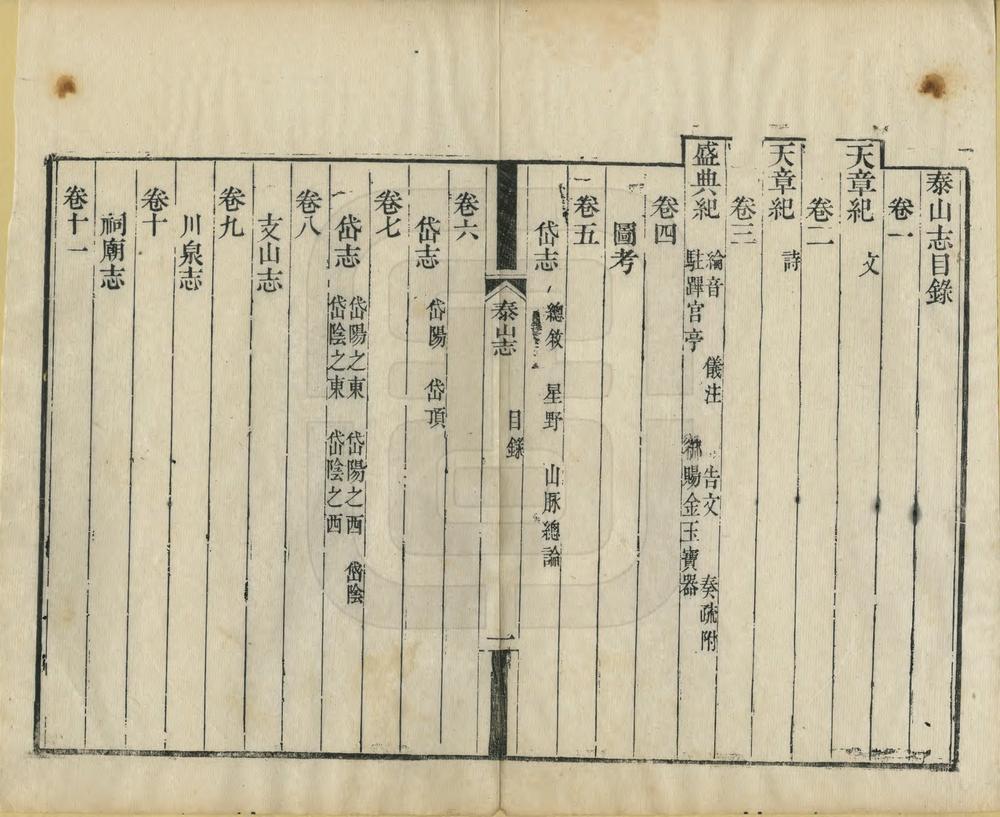 泰山志目錄
卷一
天章紀 文
卷二
天章紀 詩
卷三
盛典紀 綸音 儀注 告文 奏疏附
駐蹕官亭 御賜金玉寶器
卷四
圖考
卷五
岱志 總敘 星野 山脈總論
泰山志 目錄 一
卷六
岱志 岱陽 岱頂
卷七
岱志 岱陽之東 岱陽之西 岱陰
岱陰之東 岱陰之西
卷八
支山志
卷九
川泉志
卷十
祠廟志
卷十一